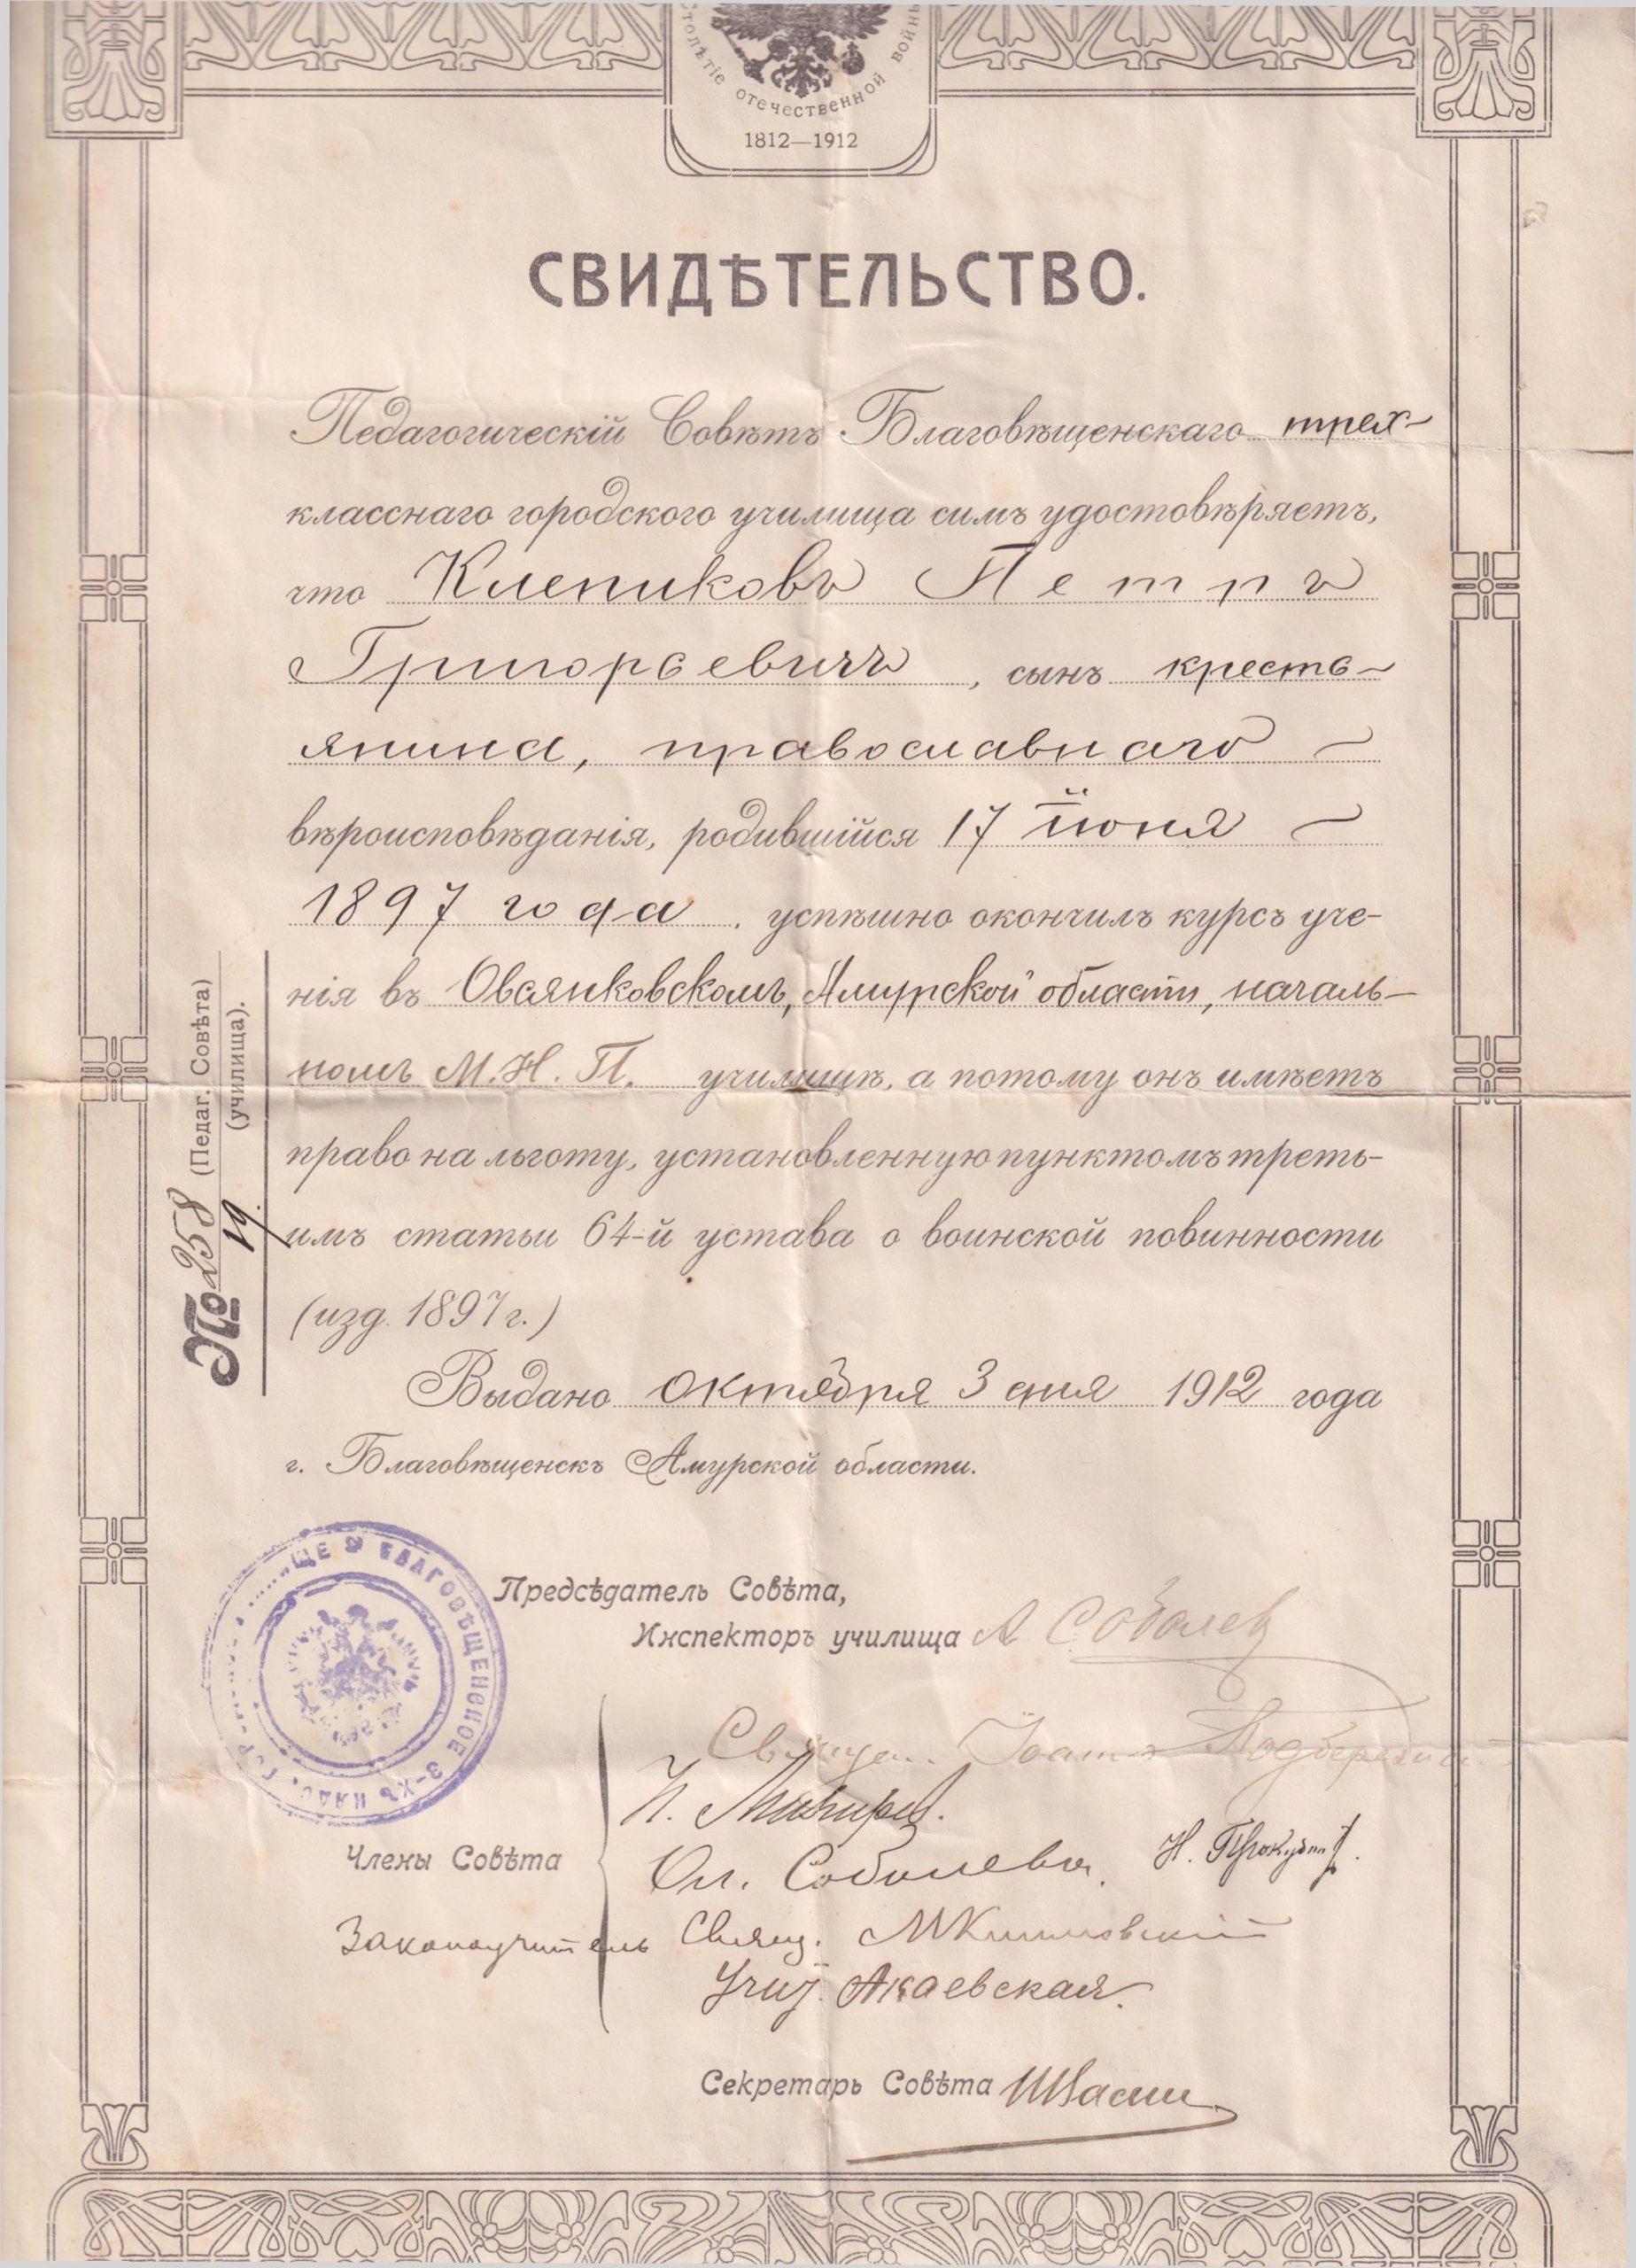 столѣтіе отечественной войны
1812—1912
СВИДѢТЕЛЬСТВО.
Педагогическій Совѣтъ Благовѣщенскаго трех-
класснаго городского училища симъ удостовѣряетъ,
что Клепиковъ Петръ
Григорьевичъ, сынъ кресть-
янина, православнаго
вѣроисповѣданія, родившійся 17 іюня
1897 года, успѣшно окончилъ курсъ уче-
нія въ Овсянковскомъ, Амурской области, началь-
номъ М.Н.П. училищѣ, а потому онъ имѣетъ
право на льготу, установленную пунктомъ треть-
имъ статьи 64-й устава о воинской повинности
(изд. 1897 г.)
Выдано октября 3 дня 1912 года
г. Благовѣщенскъ Амурской области.
№ 258 (Педаг. Совѣта)
19 (училища).
БЛАГОВѢЩЕНСКОЕ 3-ХЪ КЛАС.
Предсѣдатель Совѣта,
Инспекторъ училища А Соболев
Священ. Іоаннъ
Члены Совѣта
Ол. Соболева.
Законоучитель Свящ.
Учит. Акаевская.
Секретарь Совѣта